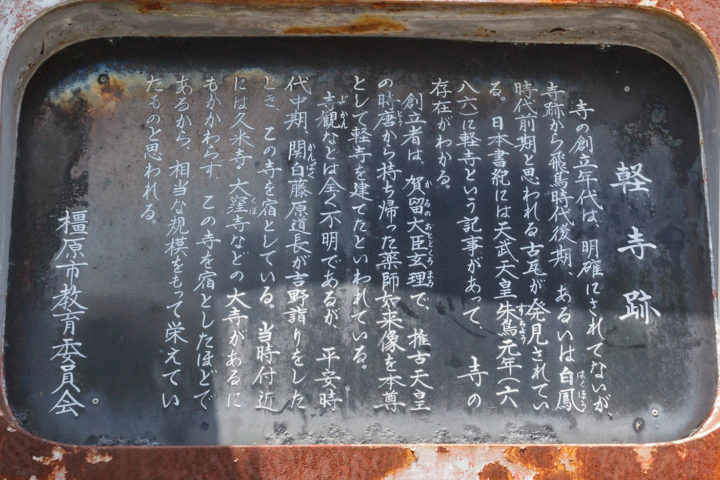 軽寺跡
寺の創立年代は、明確にされてないが、
寺跡から飛鳥時代後期、あるいは白鳳
時代前期と思われる古瓦が発見されてい
る。日本書紀には天武天皇朱鳥元年(六
八六)に軽寺という記事があって、寺の
存在がわかる。
創立者は、賀留大臣玄理で、推古天皇
の時唐から持ち帰った薬師如来像を本尊
として軽寺を建てたといわれている。
寺観などは全く不明であるが、平安時
代中期、関白藤原道長が吉野詣りをした
とき、この寺を宿としている。当時付近
には久米寺・大窪寺などの大寺があるに
もかかわらず、この寺を宿としたほどで
あるから、相当な規模をもって栄えてい
たものと思われる。
橿原市教育委員会